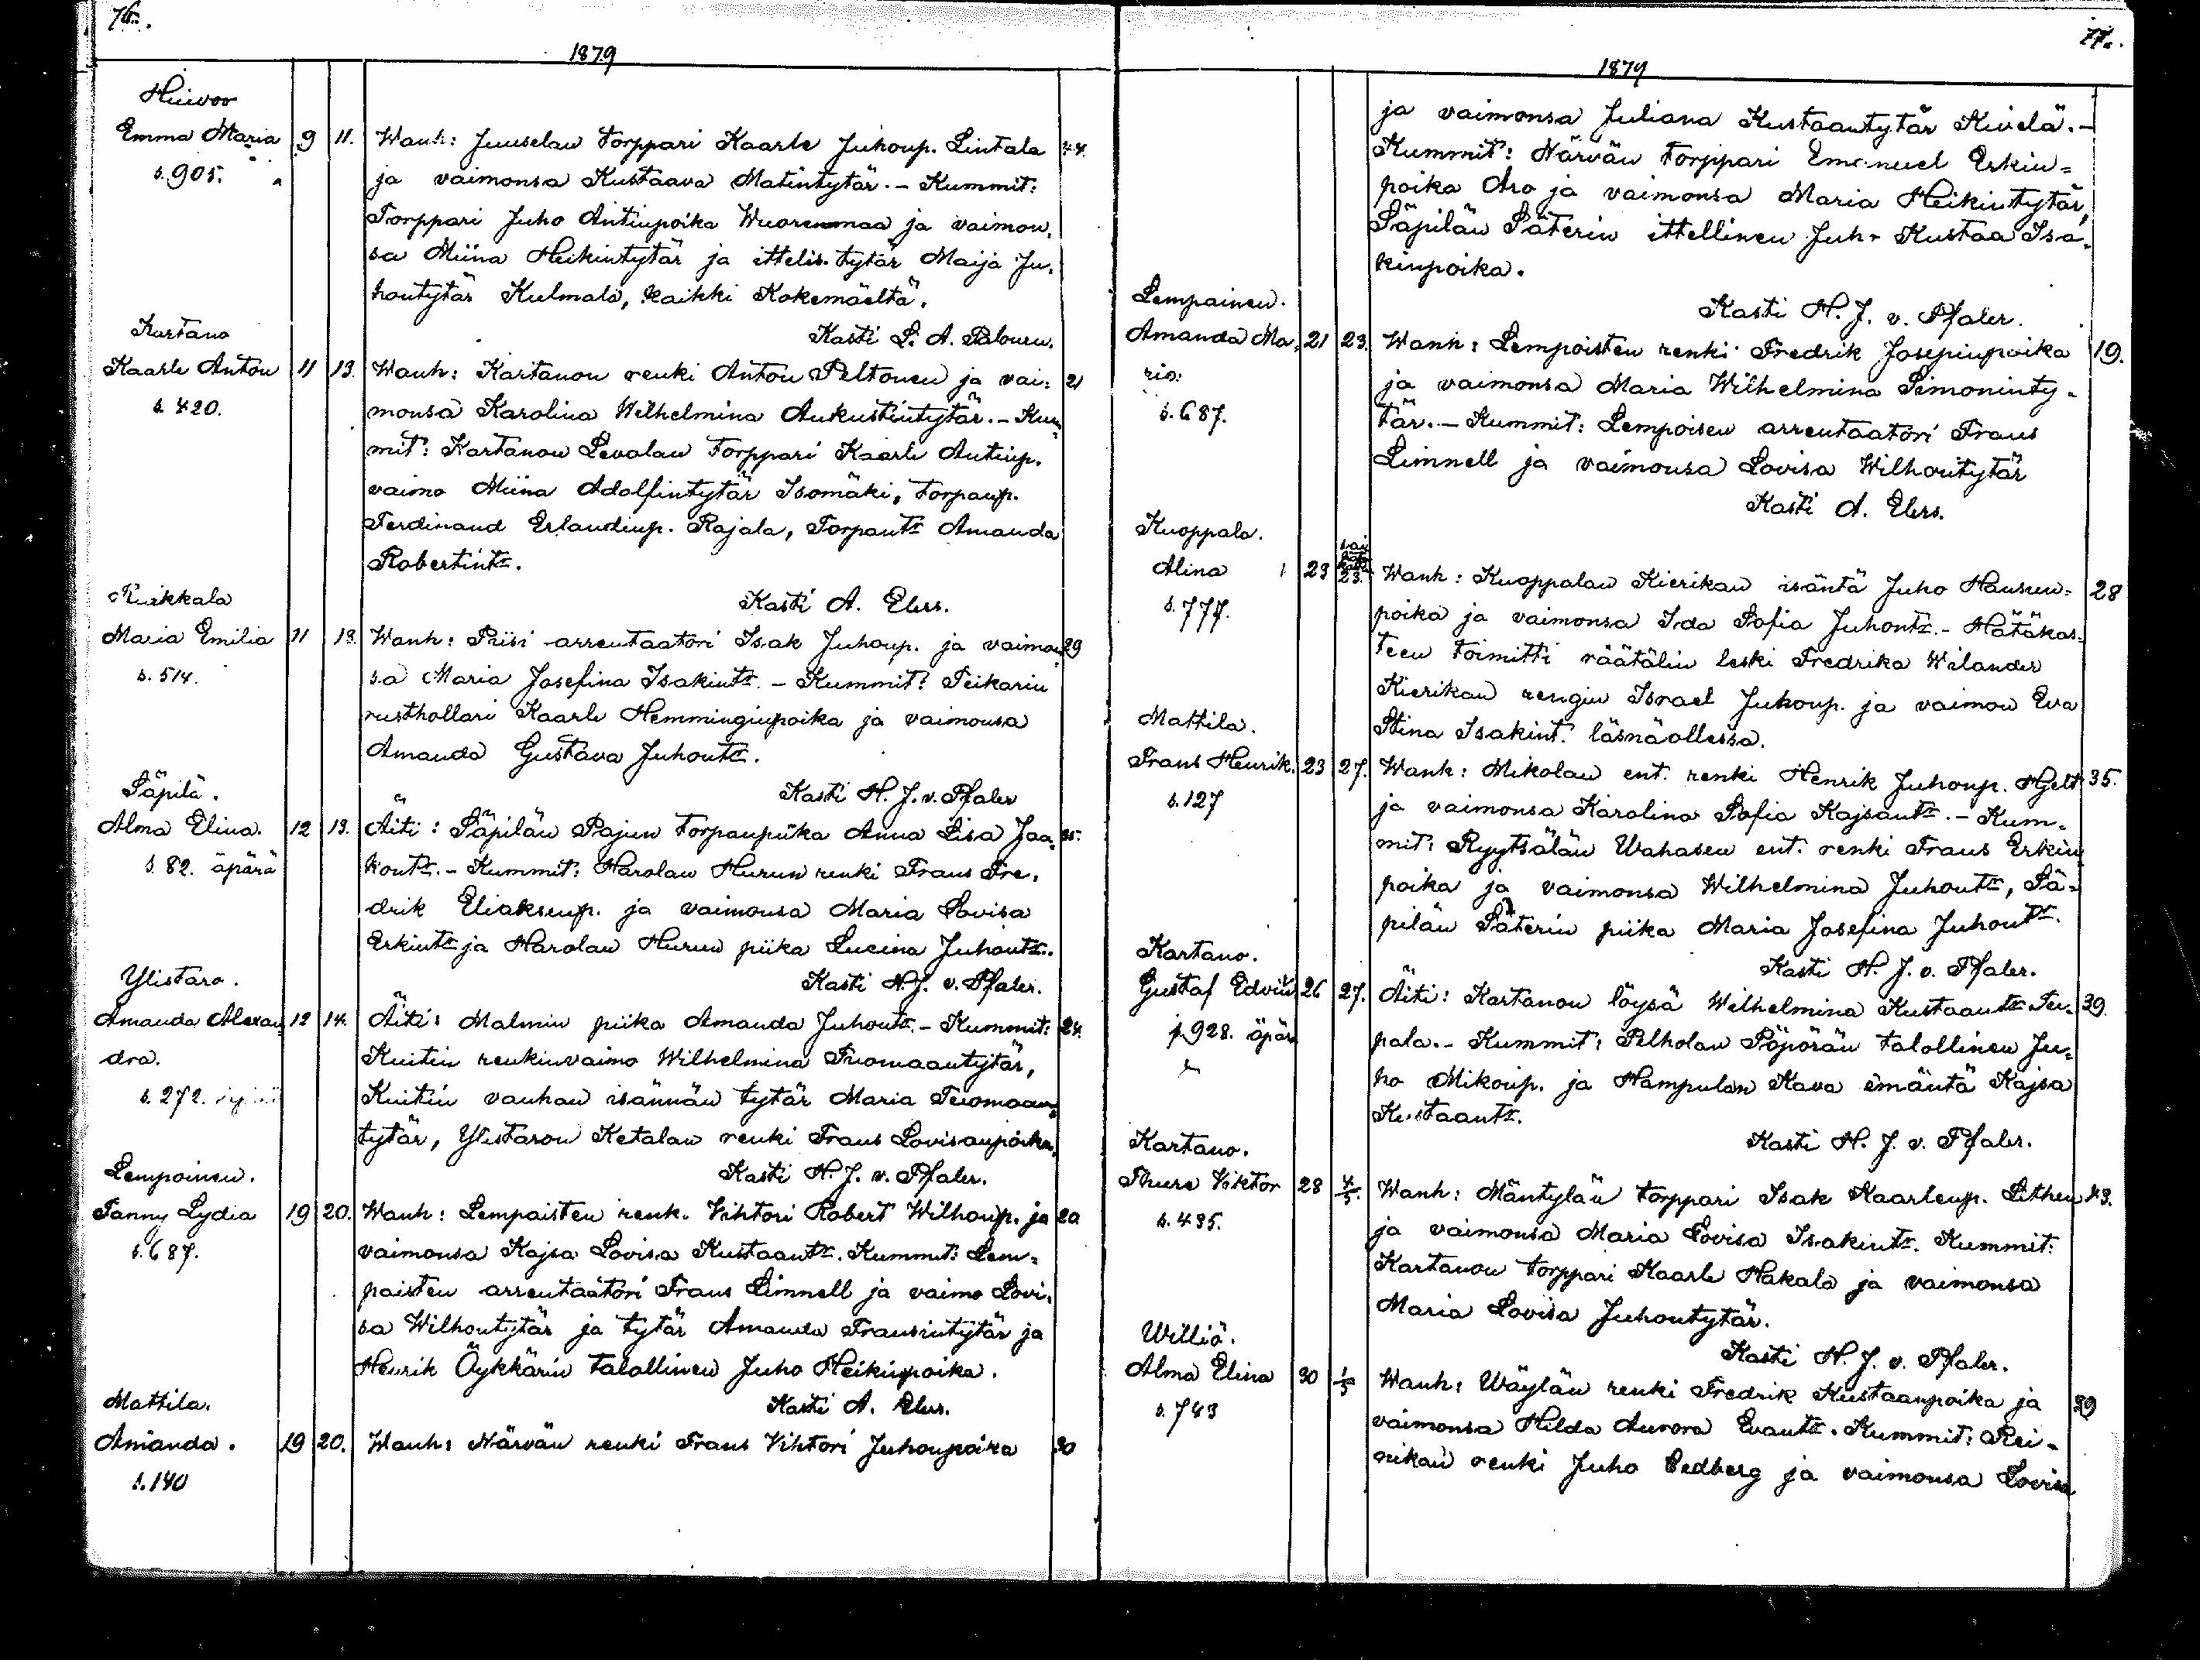 76.
1879
Huivoo
Emma Maria 9 11. Wanh: Juuselan torppari Kaarle Juhonp. Lintala 44.
s. 905. ja vaimonsa Kustaava Matintytär. - Kummit:
Torppari Juho Antinpoika Wuorenmaa ja vaimon-
sa Miina Heikintytär ja ittelis. tytär Maija Ju-
hontytär Kulmala, kaikki Kokemäeltä.
Kasti L. A. Palonen.
Kartano
Kaarle Anton 11 13. Wanh: Kartanon renki Anton Peltonen ja vai- 21
s. 420. monsa Karolina Wilhelmina Aukustintytär. - Kum-
mit: Kartanon Levolan torppari Kaarle Antinp.
vaimo Miina Adolfintytär Isomäki, torpanp.
Ferdinand Erlandinp. Rajala, Torpantr Amanda
Robertintr.
Kasti A. Elers.
Kukkala
Maria Emilia 11 13. Wanh: Piisi arrentaatori Isak Juhonp. ja vaimon- 29
s. 514. sa Maria Josefina Isakintr. - Kummit: Peikarin
rusthollari Kaarle Hemminginpoika ja vaimonsa
Amanda Gustava Juhontr.
Kasti H. J. v. Pfaler
Säpilä.
Alma Elina. 12 13. Äiti: Säpilän Pajun torpanpiika Anna Lisa Jaa- 25.
s. 82. äpärä kontr. - Kummit: Harolan Hurun renki Frans Fre-
drik Eliaksenp. ja vaimonsa Maria Lovisa
Erkintr ja Harolan Hurun piika Lucina Juhontr.
Kasti H. J. v. Pfaler.
Ylistaro.
Amanda Alexan- 12 14. Äiti: Malmin piika Amanda Juhontr. - Kummit: 24.
dra. Kuitin renkinvaimo Wilhelmina Tuomaantytär,
s. 272. Kuitin vanhan isännän tytär Maria Tuomaan-
tytär, Ylistaron Ketalan renki Frans Lovisanpoika.
Kasti H. J. v. Pfaler.
Lempoinen.
Fanny Lydia 19 20. Wanh: Lempaisten renk. Vihtori Robert Wilhonp. ja 20
s. 687. vaimonsa Kajsa Lovisa Kustaantr. Kummit: Lem-
paisten arrentaatori Frans Limnell ja vaimo Lovi-
sa Wilhontytär ja tytär Amanda Fransintytär ja
Henrik Öykkärin talollinen Juho Heikinpoika.
Kasti A. Elers.
Mattila.
Amanda. 19 20. Wanh: Närvän renki Frans Vihtori Juhonpoika 30
s. 140
77.
1879
ja vaimonsa Juliana Kustaantytär Kivelä. -
Kummit: Närvän torppari Emanuel Erkin-
poika Aro ja vaimonsa Maria Heikintytär,
Säpilän Säterin ittellinen Juh. Kustaa Isa-
kinpoika.
Kasti H. J. v. Pfaler.
Lempainen.
Amanda Ma- 21 23. Wanh: Lempoisten renki Fredrik Josepinpoika 19.
ria. ja vaimonsa Maria Wilhelmina Simoninty-
s. 687. tär. - Kummit: Lempoisen arrentaatori Frans
Limnell ja vaimonsa Lovisa Wilhontytär
Kasti A. Elers.
Kuoppala.
Alina 23 23. Wanh: Kuoppalan Kierikan isäntä Juho Hansun- 28
s. 777. poika ja vaimonsa Ida Sofia Juhontr. - Hätäkas-
teen toimitti räätälin leski Fredrika Wilander
Kierikan rengin Israel Juhonp. ja vaimon Eva
Stina Isakint. läsnäollessa.
Mattila.
Frans Henrik. 23 27. Wanh: Mikolan ent. renki Henrik Juhonp. Hjelt 35.
s. 127 ja vaimonsa Karolina Sofia Kajsantr. - Kum-
mit: Ryytsälän Uahasen ent. renki Frans Erkin
poika ja vaimonsa Wilhelmina Juhontr, Sä-
pilän Säterin piika Maria Josefina Juhontr.
Kasti H. J. v. Pfaler.
Kartano.
Gustaf Edvin 26 27. Äiti: Kartanon löysä Wilhelmina Kustaantr Ter- 39.
s. 928. äpär. pala. - Kummit: Pelholan Pöpörän talollinen Ju-
ho Mikonp. ja Hampulan Kava emäntä Kajsa
Kustaantr.
Kasti H. J. v. Pfaler.
Kartano.
Thure Viktor 28 4/5. Wanh: Mäntylän torppari Isak Kaarlenp. Lithen 43.
s. 435. ja vaimonsa Maria Lovisa Isakintr. Kummit:
Kartanon torppari Kaarle Hakala ja vaimonsa
Maria Lovisa Juhontytär.
Kasti H. J. v. Pfaler.
Williö.
Alma Elina 30 1/5 Wanh: Wäylän renki Fredrik Kustaanpoika ja 39
s. 743 vaimonsa Hilda Aurora Evantr. Kummit: Rei-
nikan renki Juho Cedberg ja vaimonsa Lovisa